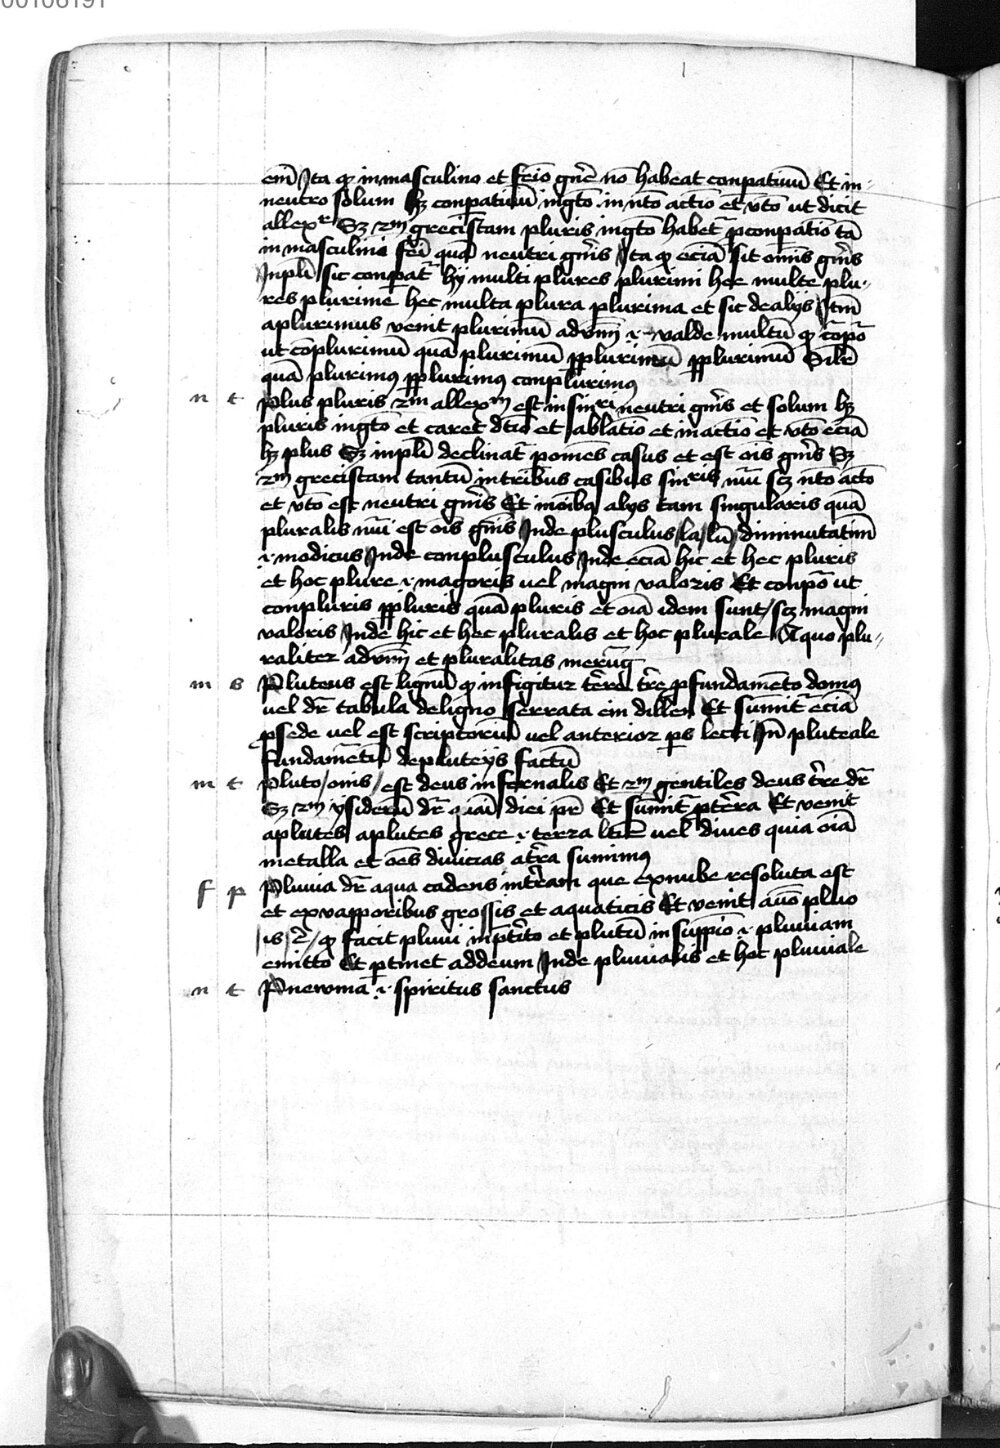 00106191
em̄ Ita qꝫ in masculino et fēīo gn̄e no habeat conpatiuū Et in-
neutro solum hꝫ conpatiuū in gto in nto actio et vto ut dicit
allexr Sꝫ 2m grecistam pluris in gto habet pconpatio tā
in masculini fēī quā neutri gn̄is Ita qꝫ eciā sit om̄is gn̄is
In plī sic conpat̄ hy multi plures plurimi hee multe plu-
res plurime hec multa plura plurima et sic de alijs Itm̄
a plurimus venit plurimū adum̄ .i. valde multū qꝫ cōpo
ut cōplurimū quā plurimū pplurimū pplurimū Silr̄
quā plurimꝰ pplurimꝰ conplurimꝰ
n t Plus pluris 2m allexm est in sinri neutri gn̄is et solum hꝫ
pluris in gto et caret dtio et ablatio et in actio et vto eciā
hꝫ plus Sꝫ in plī declinat̄ p om̄es casus et est ois gn̄is Sꝫ
2m grecistam tantū in tribus casibus sinris nūī scꝫ nto acto
et vto est neutri gn̄is Et in oībꝫ alys tam singularis quā
pluralis nūī est ois gn̄is Inde plusculus la lū diminutatiuū
.i. modicus Inde conplusculus Inde eciā hic et hec pluris
et hoc plure .i. magoris uel magni valoris Et conpo ut
conpluris ppluris quā pluris et oīā idem sunt / scꝫ magni
valoris Inde hic et hec pluralis et hoc plurale A quo plu-
raliter adum̄ et pluralitas
m s Pluteus est lignū qꝫ infigitur tēre tr̄e p fundamēto domꝰ
uel dr̄ tabula de ligno serrata Et sumit̄ eciā
p sede uel est scriptoriū uel anterior ps lecti In̄ pluteale
fundamētū de pluteijs factū
m t Pluto / onis / est deus infernalis Et 2m gentiles deus tr̄e dr̄
Sꝫ 2m ysiderū dr̄ diei pr̄ Et sumit̄ p tēra Et venit
a plutes a plutes grece .i. terra uel dives quia oīā
metalla et oēs diuicias a tr̄a sumimꝰ
f p Pluuia dr̄ aqua cadens in tēram que ex nube resoluta est
et ex vapporibus grossis et aquaticis Et venit a u̅o pluo
is qꝫ facit pluui in ptīto et plutū in suppīo .i. pluuiam
emitto Et ptinet ad deum Inde pluuialis et hoc pluuiale
n t Pnewma .i. spiritus sanctus